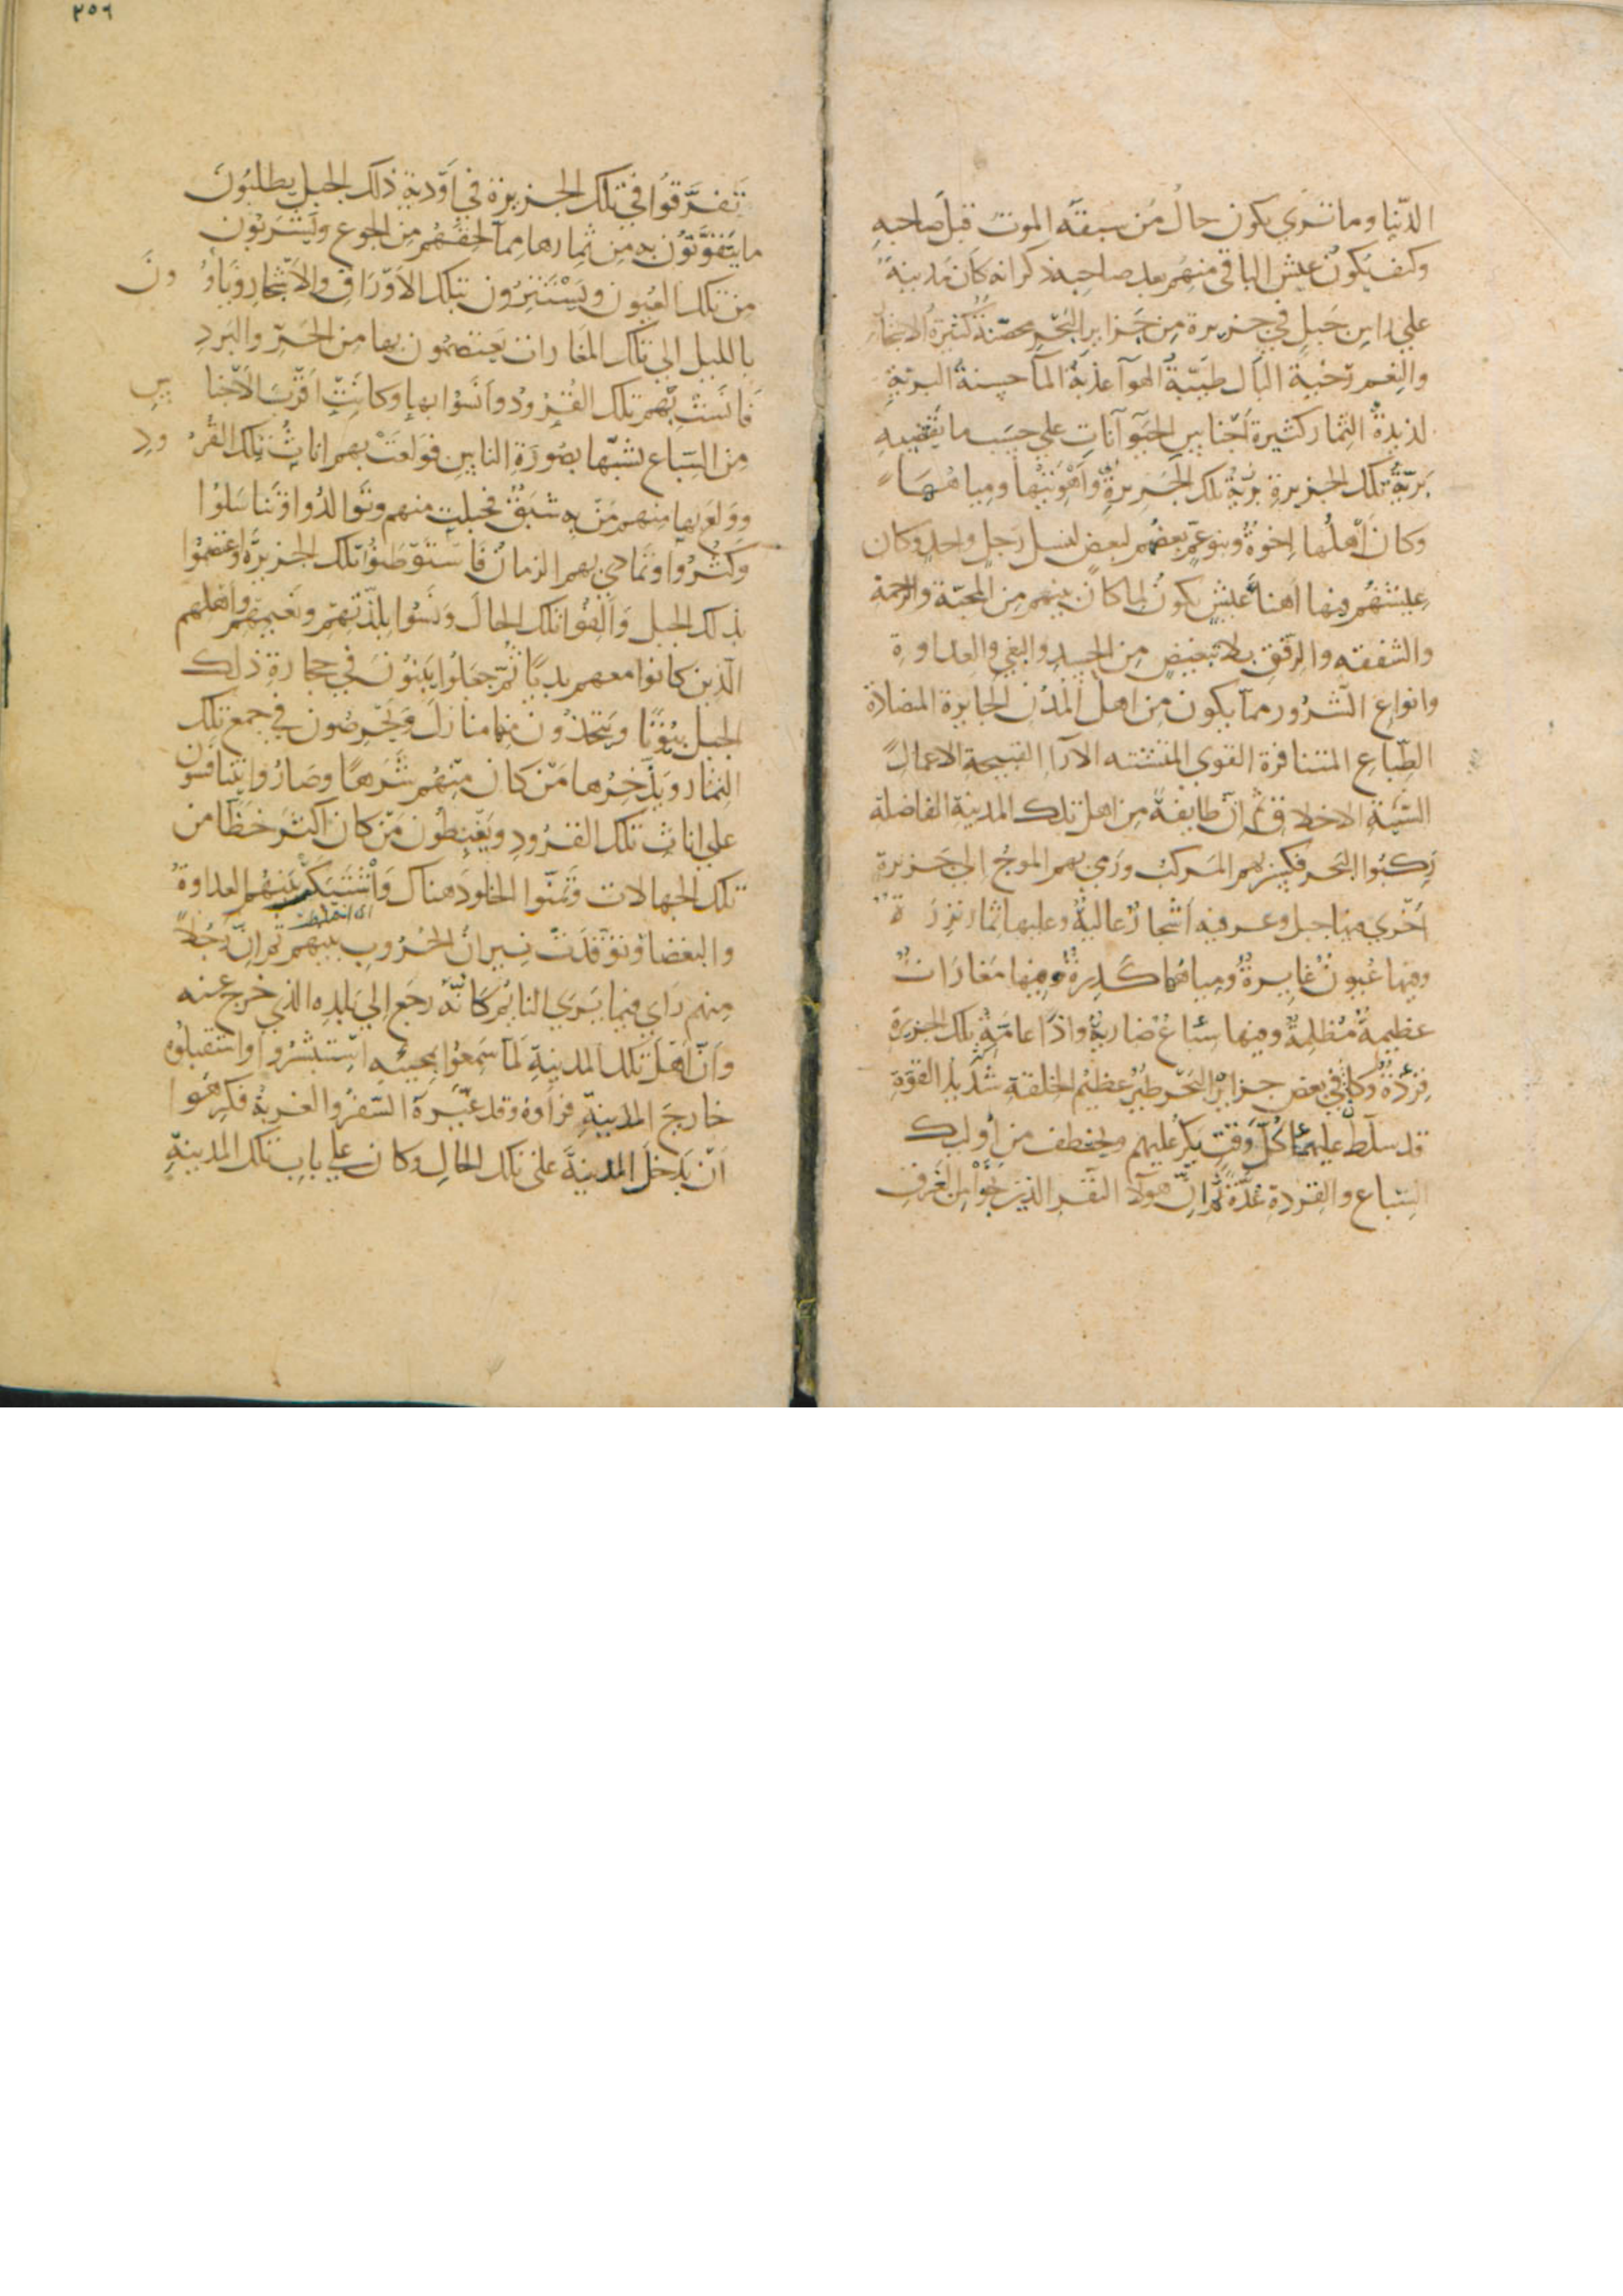 الدّنيا وما تري يكون حالُ من سبقه الموت قبل صاحبه
وكيف يكون عيش الباقي منهم بعد صاحبه ذكر انه كان مدينةً
علي راس جبل في جزيرة من جزاير البحر محصنة كثيرة الاشجار
والنعم رخية البال طيّبة الهوآ عذبة المآ حسنة التربة
لذيذة الثمار كثيرة اجناس الحيوآنات علي حسب ما يقتضيه
تربة تلك الجزيرة تربة تلك الجزيرة واهويتها ومياهها
وكان اهلها اخوة وبنو عمّ بعضهم لبعض لنسل رجل واحد وكان
عيشهم فيها اهنأ عيش يكون لما كان بينهم من المحبّة والرحمة
والشفقه والرفق بلا تبغيض من الحسد والبغي والعداوة
وانواع الشرور مما يكون من اهل المدن الجايرة المضلاة
الطباع المتنافرة القوي المتشتته الآرآ القبيحة الاعمال
السّية الاخلاق ثم انّ طايفة من اهل تلك المدينة الفاضلة
ركبوا البحر فكسر بهم المركب ورمي بهم الموج الي جزيرة
اخري فيها جبل وعر فيه اشجار عالية وعليها ثمار نزرة
وفيها عيون غايرة ومياهها كدرة وفيها مغارات
عظيمة مظلمة وفيها سباع ضارية واذا عامّة تلك الجزيرة
قردة وكان في بعض جزاير البحر طير عظيم الخلقة شديد القوّة
قد سلط عليها كلّ وقت يكرّ عليهم ويخطف من أوليك
السباع والقردة عدّة ثم انّ هولآ النفر الذين نجوا من الغرق
٢٥٦
تفرّقوا في تلك الجزيرة في اودية ذلك الجبل يطلبون
ما يتقوّتون به من ثمارها مما لحقهم من الجوع ويشربون
من تلك العيون ويستترون بتلك الاوراق والاشجار وياوون
بالليل الي تلك المغارات يعتصمون بها من الحرّ والبرد
فانست بهم تلك القرود وانسوا بها وكانت اقرب الاجناس
من السباع تشبّها بصورة الناس فولعت بهم اناث تلك القرود
وولع بها منهم من به شبق فحبلت منهم وتوالدوا وتناسلوا
وكثروا وتمادي بهم الزمان فاستوطنوا تلك الجزيرة واعتصموا
بذلك الجبل والفوا تلك الحال ونسوا بلذّتهم ونعيمهم واهلهم
الذين كانوا معهم بديّا ثم جعلوا يبنون في حجارة ذلك
الجبل بيوتا ويتخذون فيها منازل ويحرصون في جمع تلك
الثمار ويدّخرها من كان منهم شرها وصاروا يتنافسون
علي اناث تلك القرود ويغبطون من كان اكثر حظّا من
تلك الجهالات وتمنّوا الخلود هناك واشتبكت بينهم العداوة
اي اختلطت
والبغضا وتوقّدت نيران الحروب بينهم ثم انّ رجلا
منهم رأي فيما يري النايم كانّه رجع الي بلده الذي خرج عنه
وانّ اهل تلك المدينة لمّا سمعوا بمجيئه استبشروا واستقبلوه
خارج المدينة فرأوه وقد غيّره السفر والغربة فكرهوا
ان يدخل المدينة علي تلك الحال وكان علي باب تلك المدينة